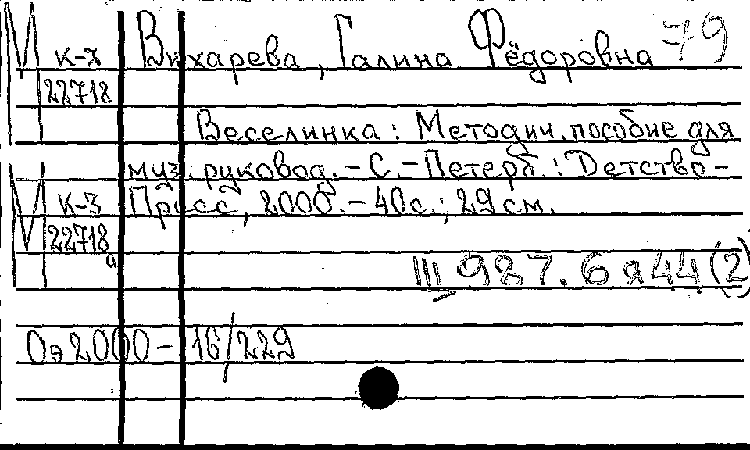 М к-з Вихарева, Галина Фёдоровна 79
22718
Веселинка: Методич. пособие для
муз. руковод. - С.-Петерб.: Детство-
М к-з Пресс, 2000. - 40с.; 29см.
22718
а
Щ 987.6я44(2)
Оэ 2000 - 16/229